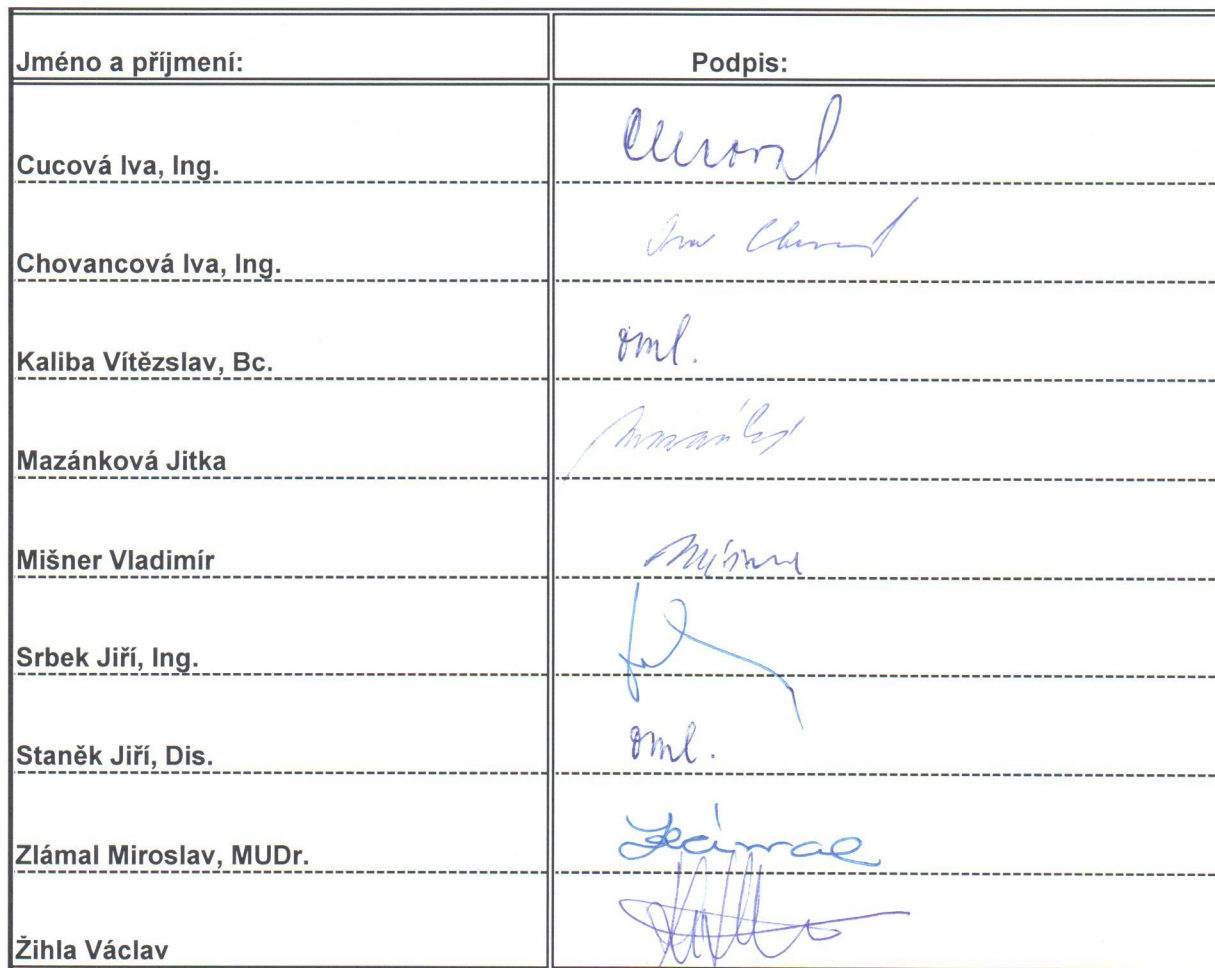 Jméno a příjmení: Podpis:
Cucová Iva, Ing.
Chovancová Iva, Ing.
Kaliba Vítězslav, Bc. oml.
Mazánková Jitka
Mišner Vladimír
Srbek Jiří, Ing.
Staněk Jiří, Dis. oml.
Zlámal Miroslav, MUDr.
Žihla Václav